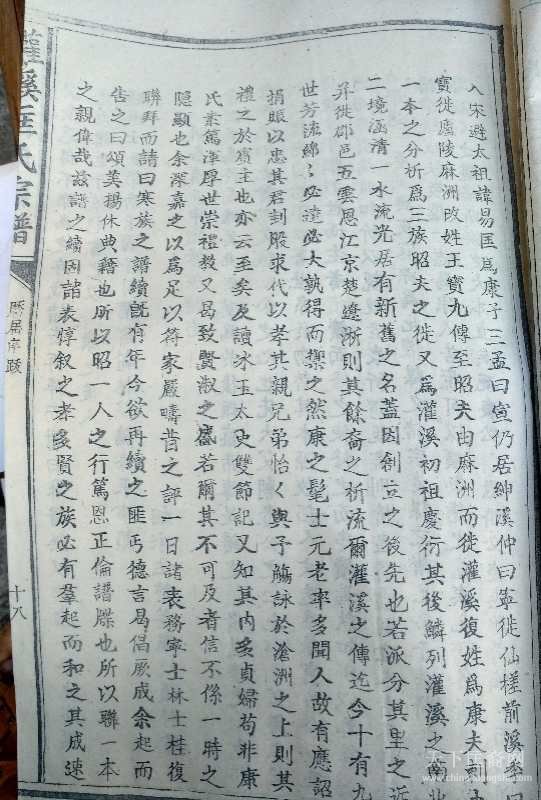 入宋避太祖諱易匡爲康子三孟曰宣仍居紳溪仲曰寧徙仙槎前溪季曰
寳徙廬陵麻洲改姓王寳九傳至昭夫由麻洲而徙灌溪復姓爲康夫
一本之分析爲三族昭夫之徙又爲灌溪初祖慶衍其後鱗列灌溪之
二境涵清一水流光居有新舊之名蓋因創立之後先也若派分其里之近
㢲徙郡邑五雲恩江京楚遼浙則其餘裔之析流爾灌溪之傳迄今十有九
世芳流綿〻必達必大孰得而禦之然康之髦士元老率多聞人故有應詔
捐賑以忠其君刲股求代以孝其親兄弟怡〱與予觴詠於滄洲之上則其
禮之於賓主也亦云至矣及讀冰玉太史雙節記又知其内多貞婦苟非康
氏素篤渾厚世崇禮教又曷致賢淑之盛若爾其不可及者信不係一時之
隱顯也余深嘉之以爲足以符家嚴疇昔之評一日諸表務寧士林士桂復
聯拜而請曰寒族之譜續旣有年今欲再續之匪丐德言曷倡厥成余起而
告之曰頌美揚休典籍也所以昭一人之行篤恩正倫譜牒也所以聯一本
之親偉哉兹譜之續因諸表惇叙之孝多賢之族必有羣起而和之其成速
灌溪匡氏宗譜
歷届序跋
十八
天下匡裔网